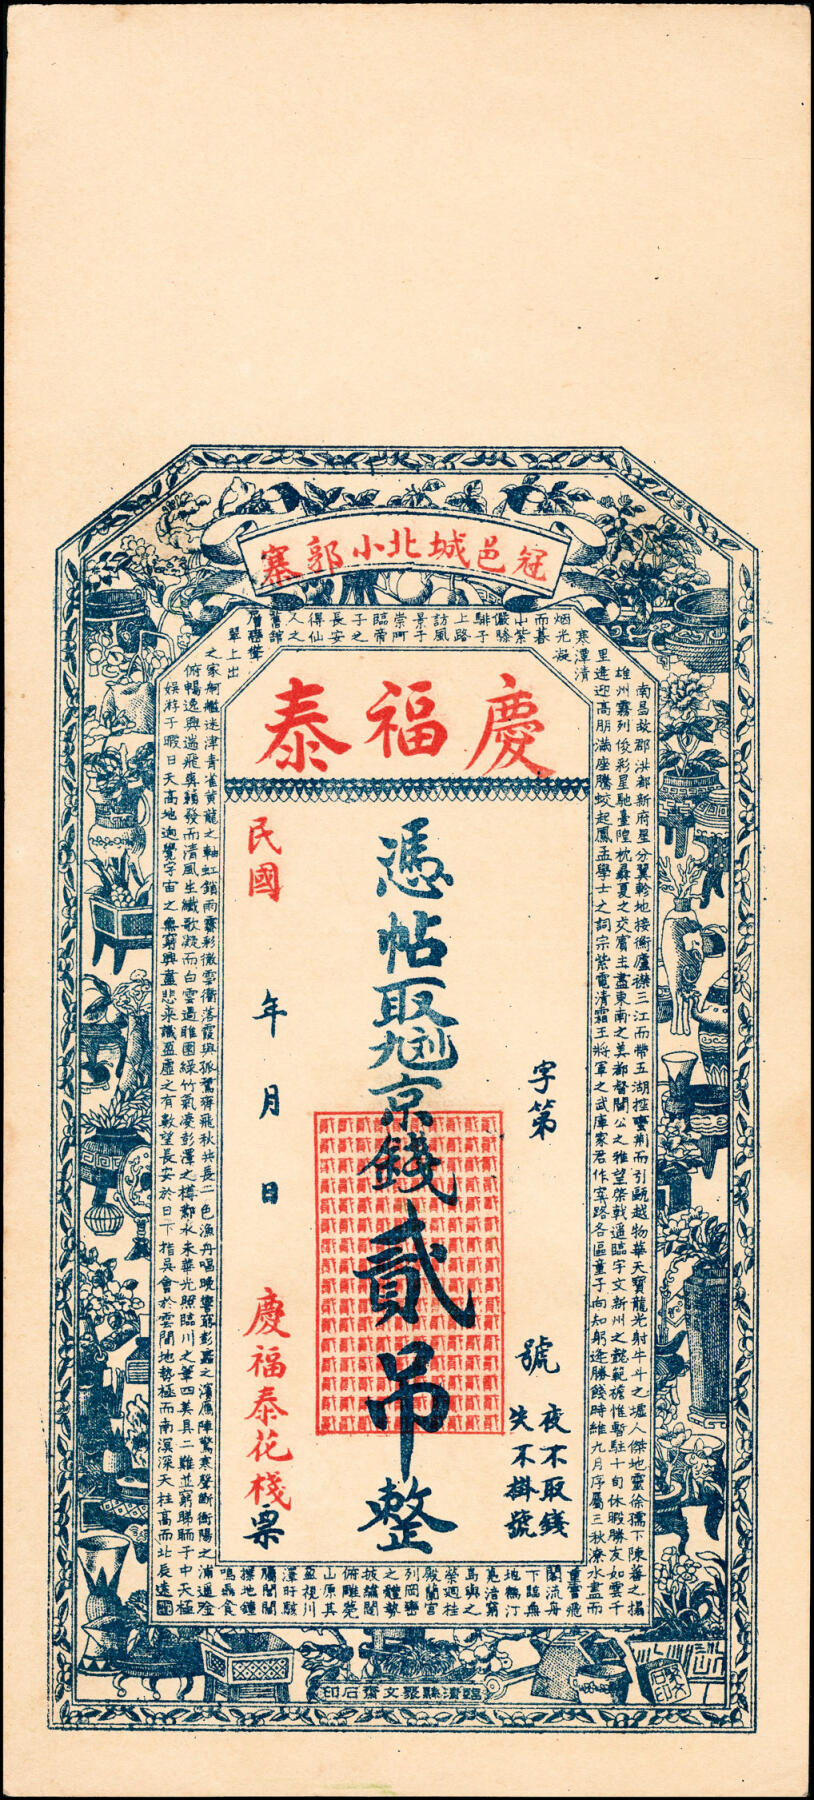 冠邑城北小郭寨
慶福泰
字第
號
夜不取錢
失不掛號
憑帖取九
京錢貳吊整
民國
年
月
日
慶福泰花棧票
南昌故郡洪都新府星分翼軫地接衡廬襟三江而帶五湖控蠻荊而引甌越物華天寶龍光射牛斗之墟人傑地靈徐孺下陳蕃之榻
雄州霧列俊彩星馳臺隍枕夷夏之交賓主盡東南之美都督閻公之雅望棨戟遙臨宇文新州之懿範襜惟暫駐十旬休暇勝友如雲千
里逢迎高朋滿座騰蛟起鳳孟學士之詞宗紫電清霜王將軍之武庫家君作宰路各區童子何知躬逢勝餞時維九月序屬三秋潦水盡而
寒潭清
烟光凝
而暮
山紫
儼驂
騑于
上路
訪風
景于
崇阿
臨帝
子之
長安
得仙
人之
舊館
層巒聳
翠上出
重霄飛
閣流丹
下臨無
地鶴汀
鳧渚窮
島嶼之
縈迴桂
殿蘭宮
列岡巒
之體勢
披繡闥
俯雕甍
山原其
盈視川
澤盱駭
矚閭閻
撲地鐘
鳴鼎食
之家舸艦迷津青雀黃龍之軸虹銷雨霽彩徹雲衢落霞與孤鶩齊飛秋共長二色漁舟唱晚響窮彭蠡之濱雁陣驚寒聲斷衡陽之浦遙吟
俯暢逸興遄飛爽籟發而清風生纖歌凝而白雲遏睢園綠竹氣凌彭澤之樽鄴水朱華光照臨川之筆四美具二難並窮睇眄于中天極
娛游于暇日天高地迥覺宇宙之無窮興盡悲來識盈虛之有數望長安於日下指吳會於雲間地勢極而南溟深天柱高而北辰遠
臨清縣聚文齋石印
聚文石印